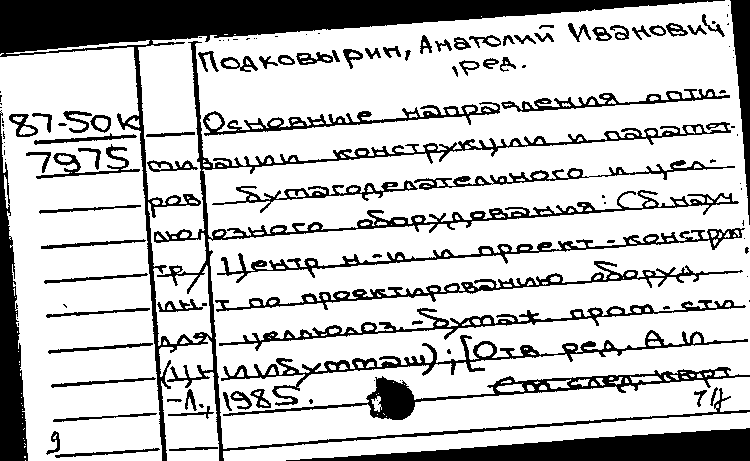 Подковырин, Анатолий Иванович
, ред.
87-50к Основные направления опти-
7975 мизации конструкции и парамет-
ров бумагоделательного и цел-
люлозного оборудования: Сб. науч
тр / Центр н.-и. и проект-конструк
ин-т по проектированию оборуд.
для целлюлоз.-бумаж. пром-сти
(ЦНИИбуммаш); [Отв. ред. А.И.
-Л., 1985. См след. карт
9